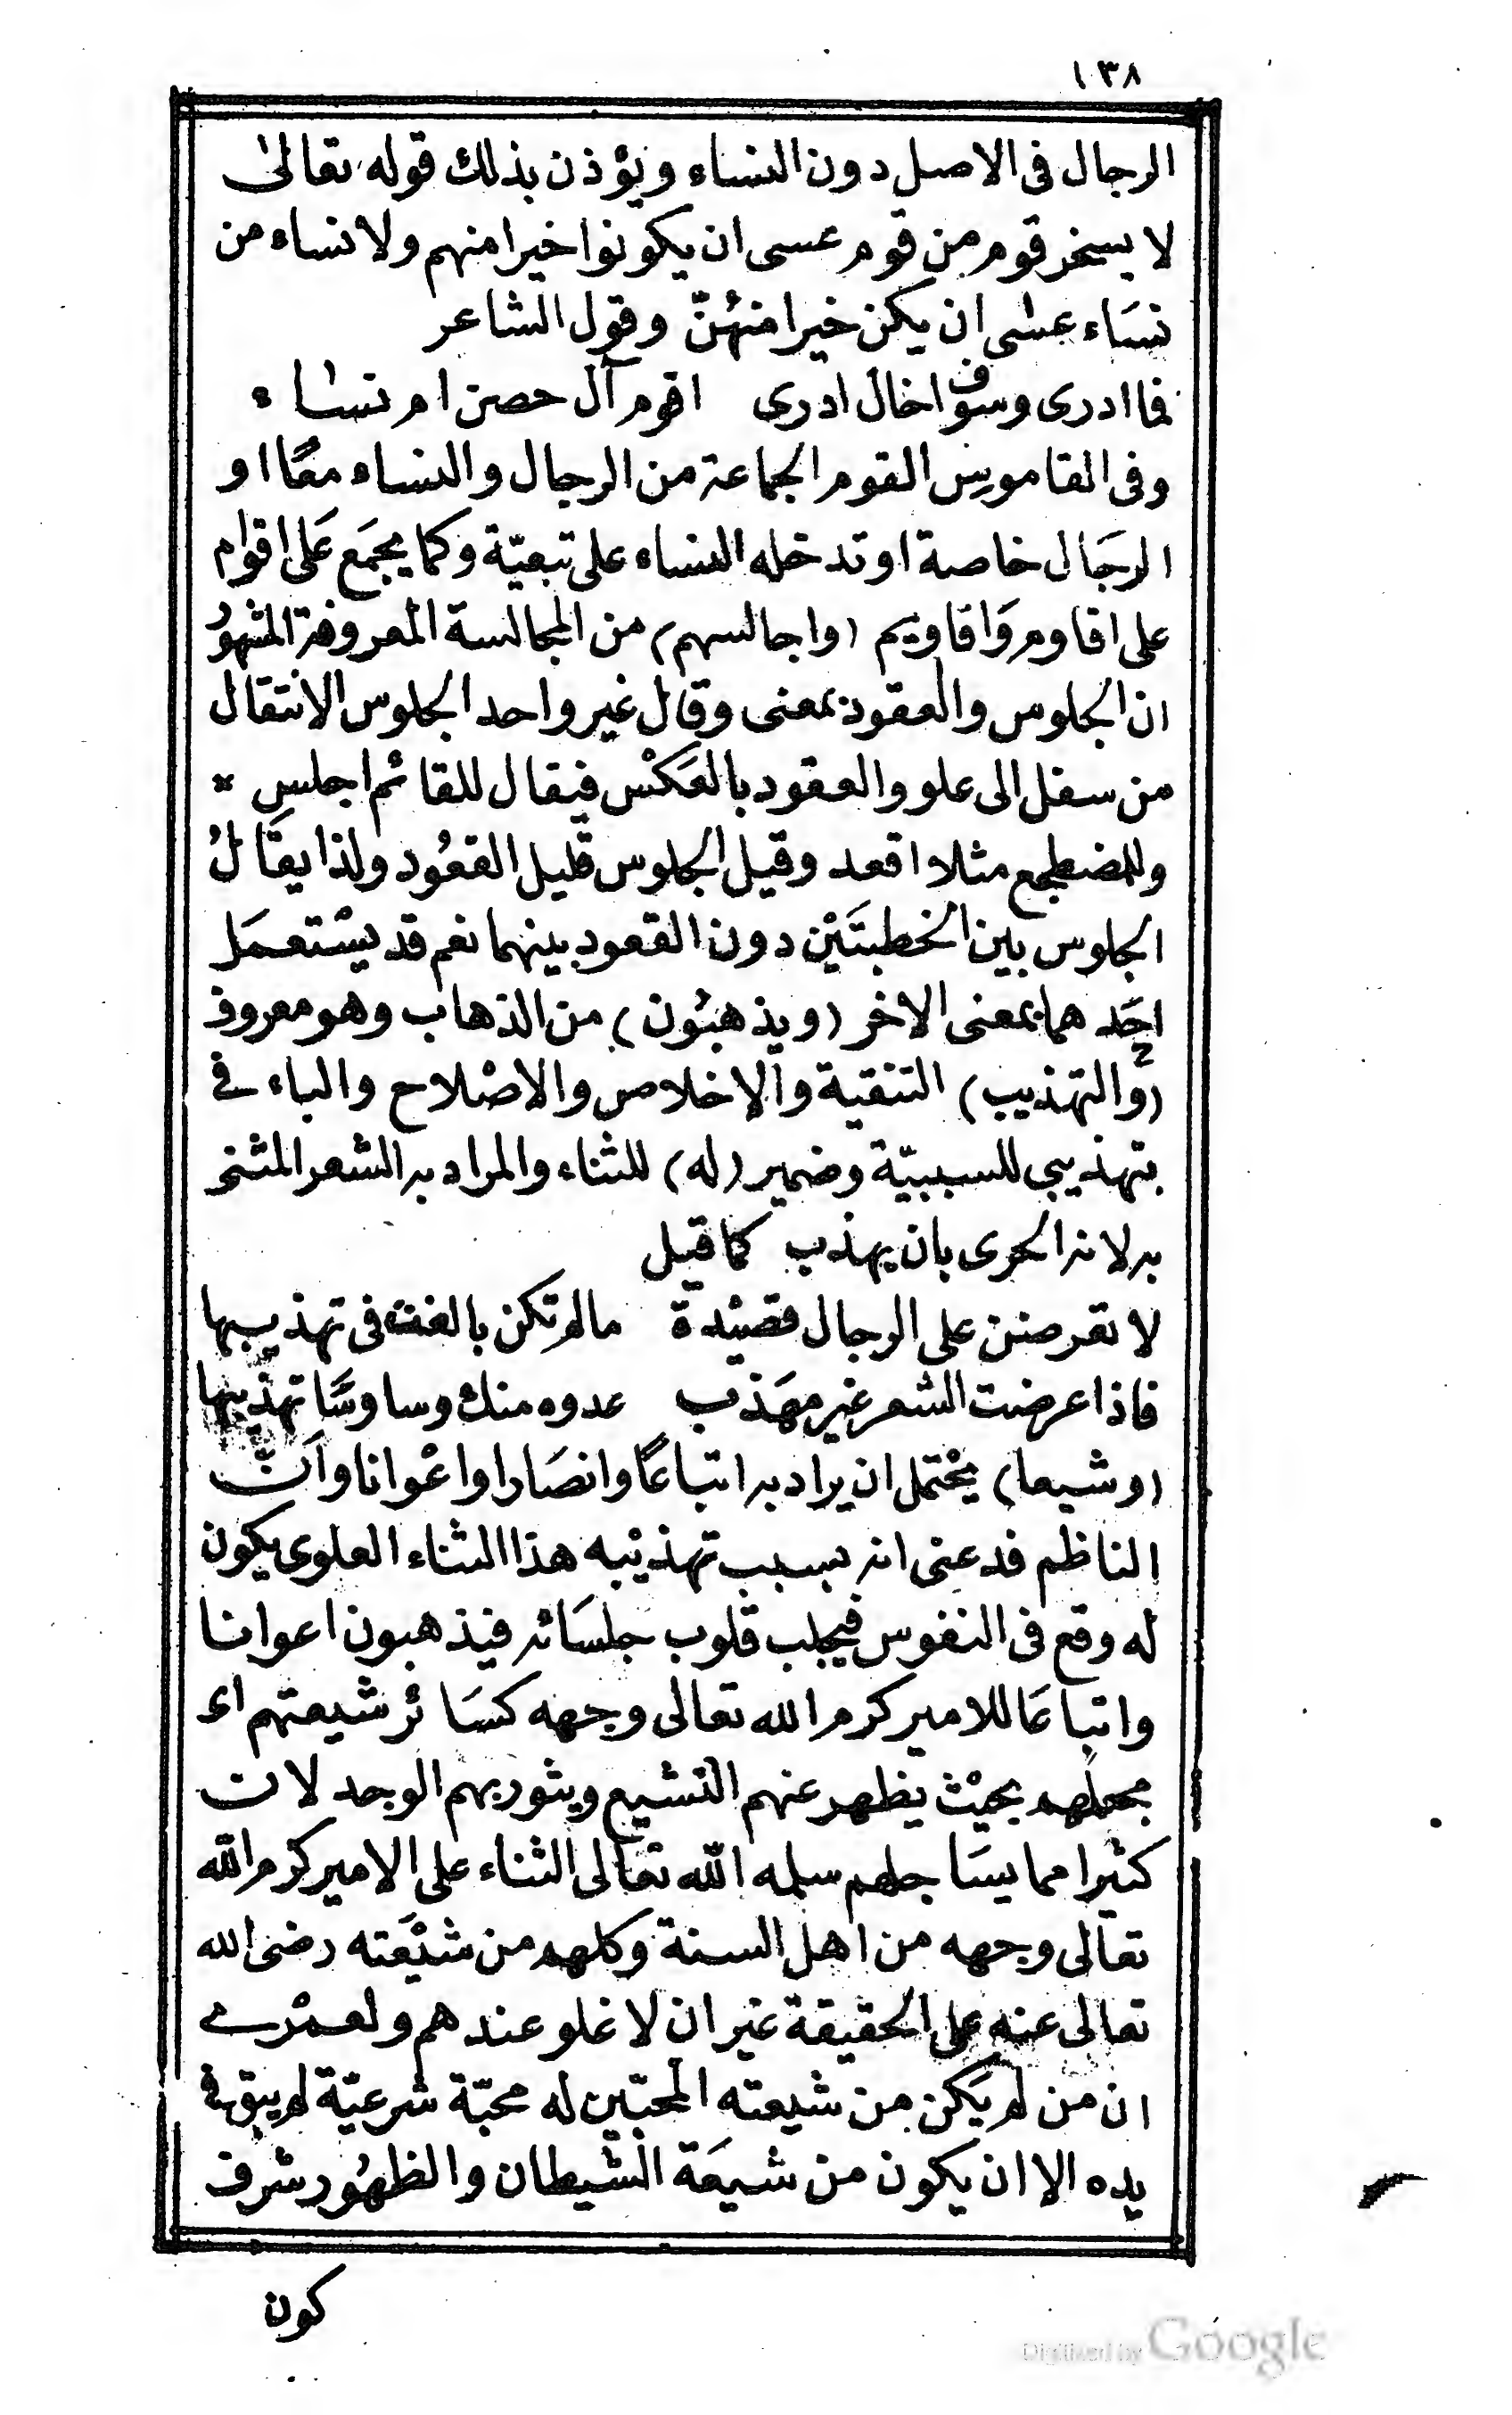 ١٣٨
الرجال فى الاصل دون النساء ويؤذن بذلك قوله تعالىٰ
لا يسخر قوم من قوم عسى ان يكونوا خيرا منهم ولا نساء من
نسَاء عسٰى ان يكن خيرا منهُنّ وقول الشاعر
فما ادرى وسوف اخال ادرى اقوم آل حصن ام نساء
وفى القاموس القوم الجماعة من الرجال والنساء معًا او
الرجَال خاصة او تدخله النساء على تبعيّة وكما يجمَع عَلى اقوام
على اقاوم وَاقاويم (واجالسهم) من المجالسة المعروفة المشهوُ
ان الجلوس والعقود بمعنى وقال غير واحد الجلوس الانتقال
من سفل الى علو والعقود بالعَكْس فيقال للقائم اجلس *
وللمضطجع مثلا اقعد وقيل الجلوس قليل القعُود ولذا يقَالُ
الجلوس بين الخطبتَيْن دون القعود بينهما نعم قد يسْتعمَل
احَدهما بمعنى الاخر (ويذهبُون) من الذهاب وهو معروف
(والتهذيب) التنقية والاخلاص والاصْلاح والباء في
بتهذيبى للسببيّة وضمير (له) للثناء والمراد به الشعر المثنى
به لانه الحرى بان يهذب كما قيل
لا تعرضن على الرجال قصيْدة مالم تكن بالغت فى تهذيبها
فاذا عرضت الشعر غير مهَذب عدوه منك وساوسًا تهذيبها
(وشيعا) يحْتمل ان يراد به اتباعًا وانصَارا واعْوانا وَانّ
الناظم قد عنى انه بسبب تهذيْبه هذا الثناء العلوى يكون
له وقع فى النفوس فيجلب قلوب جلسَائه فيذهبون اعوانا
واتباعَا للامير كرم الله تعالى وجهه كسَائر شيعتهم او
بجعلهم بحيْث يظهر عنهم التشيع ويثور بهم الوجد لان
كثيرا مما يسَاجلهم سلمه الله تعالى الثناء على الامير كرم الله
تعالى وجهه من اهل السنة وكلهم من شيْعته رضى الله
تعالى عنه على الحقيقة غير ان لا غلو عندهم ولعمْرے
ان من لم يَكن من شيعته المحبّين له محبّة شرعيّة لم يبق فى
يده الا ان يكون من شيعَة الشيطان والظهُور شرف
كون
Digitized by Google